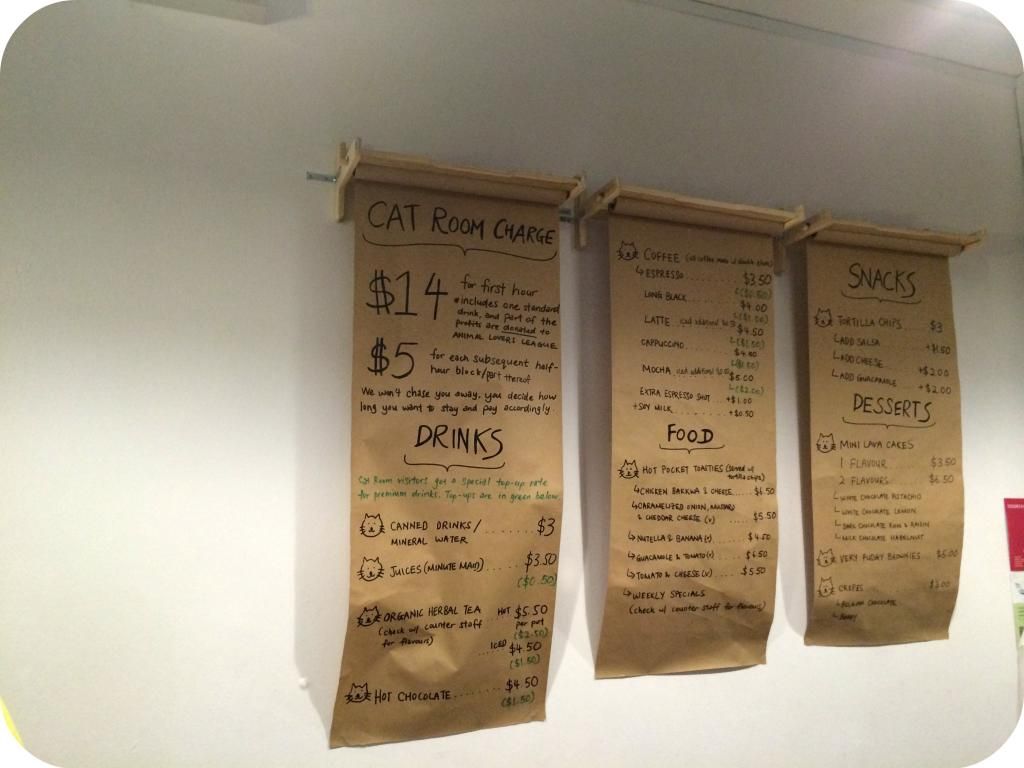 CAT ROOM CHARGE
$14 for first hour
*includes one standard
drink, and part of the
profits are donated to
ANIMAL LOVERS LEAGUE
$5 for each subsequent half-
hour block/part thereof
We won't chase you away, you decide how
long you want to stay and pay accordingly.
DRINKS
Cat Room visitors get a special top-up rate
for premium drinks. Top-ups are in green below.
CANNED DRINKS/ ........ $3
MINERAL WATER
JUICES (MINUTE MAID) ........ $3.50
($0.50)
ORGANIC HERBAL TEA HOT $5.50
(check w/ counter staff per pot
for flavours) ($2.50)
ICED $4.50
($1.50)
HOT CHOCOLATE ........ $4.50
($1.50)
COFFEE (all coffee made w/ double shots)
ESPRESSO ........ $3.50
($0.50)
LONG BLACK ........ $4.00
($1.00)
LATTE iced additional $0.50 $4.50
($1.50)
CAPPUCCINO ........ $4.50
($1.50)
MOCHA iced additional $0.50 $5.00
($2.00)
EXTRA ESPRESSO SHOT .. +$1.00
+SOY MILK ........ +$0.50
FOOD
HOT POCKET TOASTIES (served w/
tortilla chips)
CHICKEN BAKKWA & CHEESE .... $6.50
CARAMELIZED ONION, MUSTARD
& CHEDDAR CHEESE (v) ... $5.50
NUTELLA & BANANA (v) ... $4.50
GUACAMOLE & TOMATO (v) ... $6.50
TOMATO & CHEESE (v) ... $5.50
WEEKLY SPECIALS
(check w/ counter staff for flavours)
SNACKS
TORTILLA CHIPS ... $3
ADD SALSA +$1.50
ADD CHEESE +$2.00
ADD GUACAMOLE +$2.00
DESSERTS
MINI LAVA CAKES
1 FLAVOUR ... $3.50
2 FLAVOURS ... $6.50
WHITE CHOCOLATE PISTACHIO
WHITE CHOCOLATE LEMON
DARK CHOCOLATE RUM & RAISIN
MILK CHOCOLATE HAZELNUT
VERY FUDGY BROWNIES $5.00
CREPES
BELGIAN CHOCOLATE